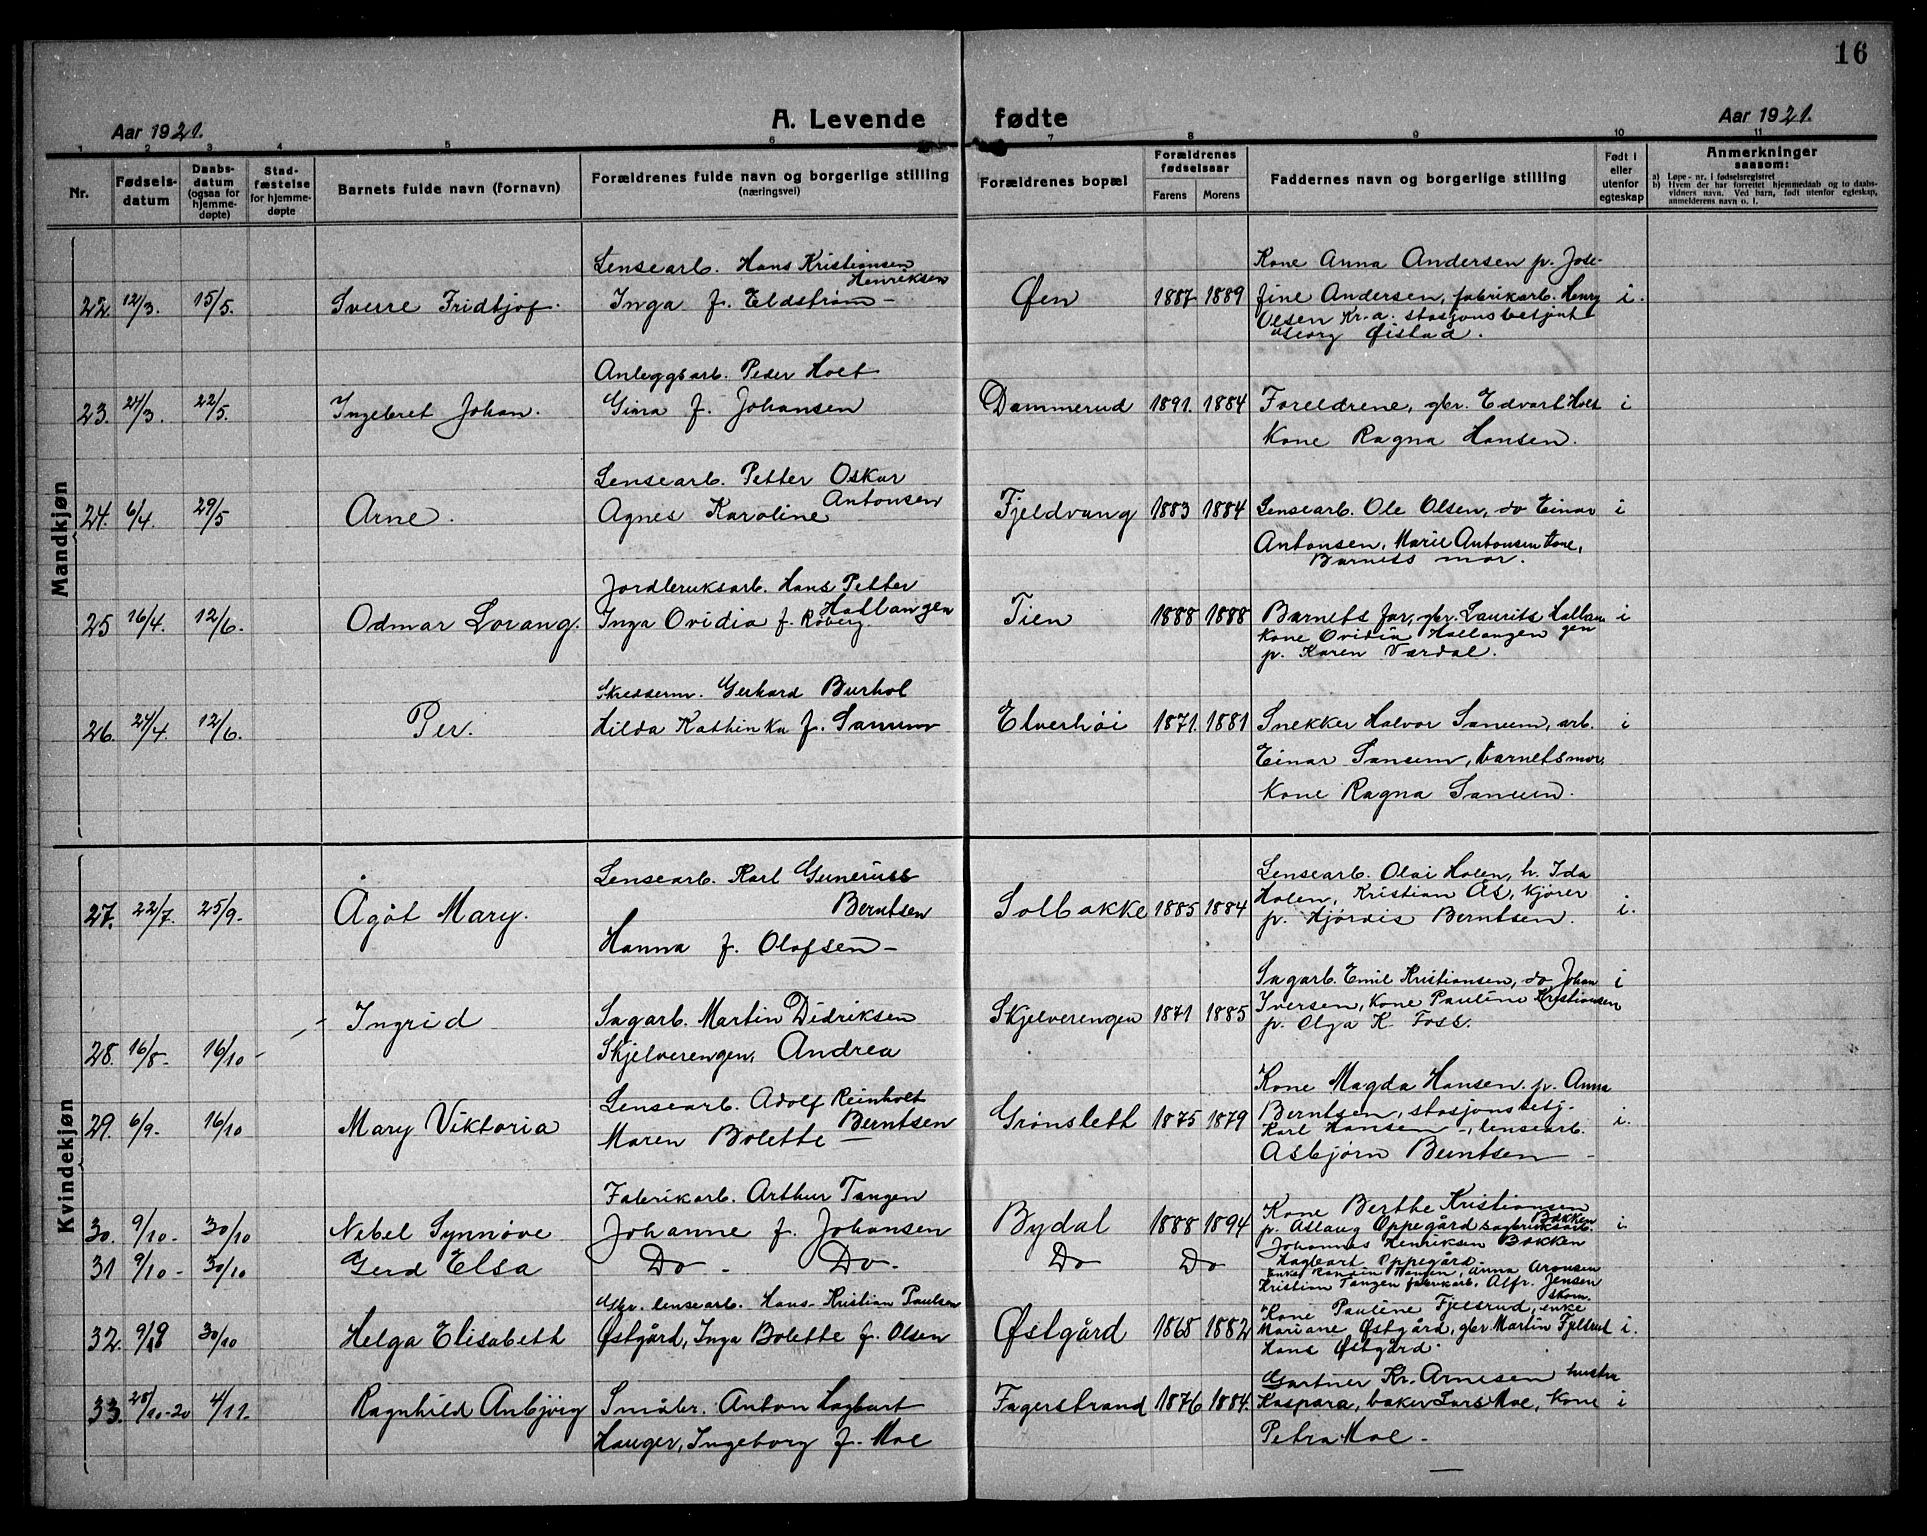 16
Aar 1921. A. Levende fødte Aar 1921.
1 2 3 4 5 6 7 8 9 10 11
Nr. Fødsels-datum Daabs-datum (ogsaa for hjemme-døpte) Stad-fæstelse for hjemme-døpte Barnets fulde navn (fornavn) Forældrenes fulde navn og borgerlige stilling (næringsvei) Forældrenes bopæl Forældrenes fødselsaar Farens Morens Faddernes navn og borgerlige stilling Født i eller utenfor egteskap Anmerkninger saasom:
a) Løpe-nr. i fødselsregistret
b) Hvem der har forrettet hjemmedaab og to daabs-vidners navn. Ved barn, født utenfor egteskap, anmelderens navn o. l.
Mandkjøn
Lensearb. Hans Kristiansen Kone Anna Andersen p. Jose-
Henriksen
22. 12/3. 15/5. Sverre Fridtjof. Inga f. Eldstrøm - Øen 1887 1889 fine Andersen, fabrikarb. Henry i.
Olsen Kr.a. stasjonsbetjent
Georg Øistad.
Anleggsarb. Peder Holt
23. 24/3. 22/5. Ingebret Johan. Gina f. Johansen Dammerud 1891. 1884 Foreldrene, gbr. Edvart Holt i
Kone Ragna Hansen.
Lensearb. Petter Oskar
Antonsen
24. 6/4. 29/5 Arne. Agnes Karoline Fjeldvang 1883 1884 Lensearb. Ole Olsen, do Einar i
Antonsen, Marie Antonsen Kone,
Barnets mor.
Jordbruksarb. Hans Petter
Hallangen
25 16/4. 12/6. Odmar Lorang. Inga Ovidia f. Røberg. Tien 1888 1888 Barnets far, gbr. Laurits Hallan i
Kone Ovidia Hallangen gen
p. Karen Værdal.
Skredderm. Gerhard Burhol
26. 24/4. 12/6. Per. Hilda Kathinka f. Sanum Elverhöi 1871. 1881 Snekker Halvor Sanum, arb. i
Einar Sanum, barnets mor,
Kone Ragna Sanum.
Kvindekjøn
Lensearb. Karl Guneriuss Lensearb. Olai Holen, h. Ida
Berntsen Holen, Kristian Ås, kjører
27. 22/7. 25/9. Ågöt Mary. Solbakke 1885 1884 p. Hjördis Berntsen. i.
Hanna f. Olafsen -
Sagarb. Emil Kristiansen, do Johan i
Ingrid Sagarb. Martin Didriksen Skjelverengen 1871 1885 Iversen, Kone Pauline Kristiansen
p. Olga K. Foss.
28. 16/8 - 16/10 - Skjelverengen, Andrea
Kone Magda Hansen. p. Anna
Lensearb. Adolf Reinholt Berntsen, stasjonsbetj.
29. 6/9. 16/10 Mary Viktoria Berntsen Grønslett 1875 1879 Karl Hansen -, lensearb. i.
Maren Bolette - Asbjørn Berntsen -
Fabrikarb. Arthur Tangen Kone Berthe Kristiansen
Bakken
30. 9/10 - 30/10 Nebel Synnøve Johanne f. Johansen Bydal 1888 1894 p. Aslaug Oppegård i
Johannes Henriksen Bakken
31 9/10 - 30/10 Gerd Elsa Do - Do - Do Do Hagbart Oppegård -
Enke Hansen, Anna Aronsen
Kristian Tangen fabrikarb. Alfr. Jensen
skom.
Gbr. lensearb. Hans Kristian Paulsen Kone Pauline Fjelsrud, enke
32. 9/ 30/10 Helga Elisabeth Østgård, Inga Bolette f. Olsen Østgård 1865 1882 Mariane Østgård, gbr Martin Fjelsrud i.
Hans Østgård.
Gartner Kr. Arnesen hustru
33. 28/10-20 4/11. Ragnhild Anbjörg Småbr. Anton Hagbart Fagerstrand 1876 1884. Kaspara, baker Lars Moe, Kone i
Hauger, Ingeborg f. Moe Petra Moe -